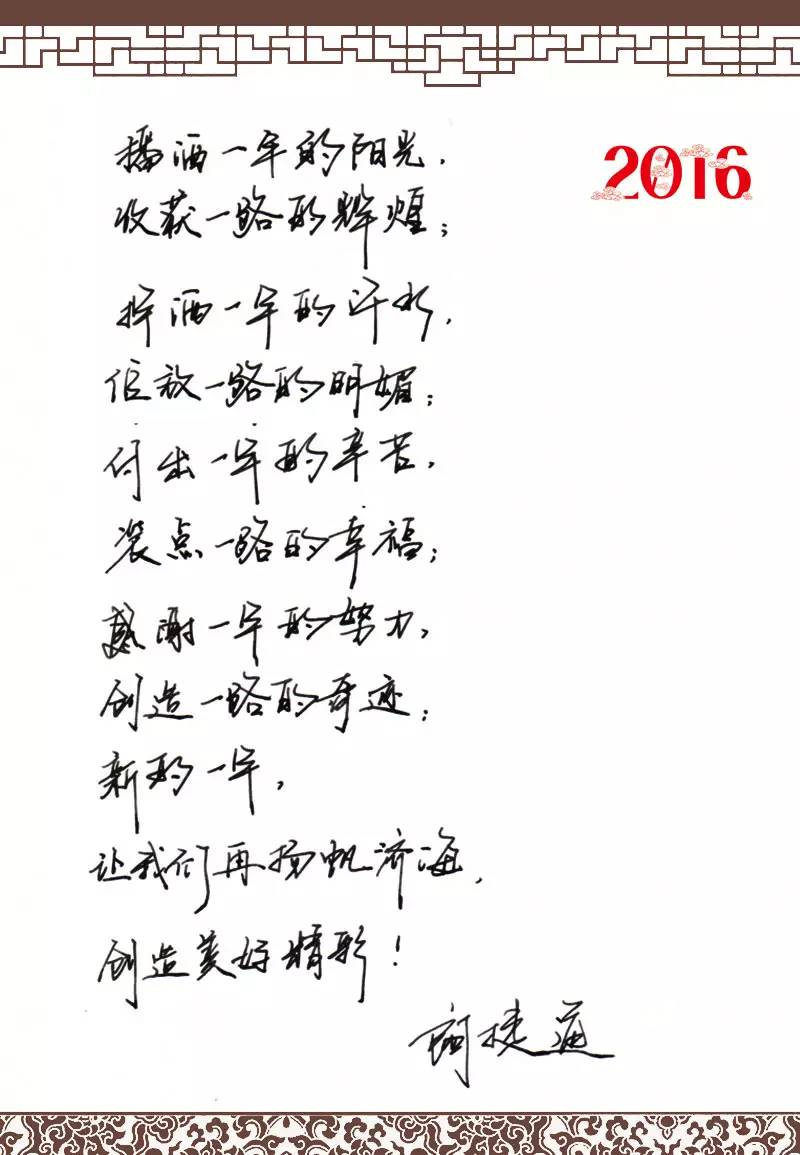 播洒一年的阳光，
2016
收获一路的辉煌；
挥洒一年的汗水，
绽放一路的明媚；
付出一年的辛苦，
装点一路的幸福；
感谢一年的努力，
创造一路的奇迹；
新的一年，
让我们再扬帆济海，
创造美好精彩！